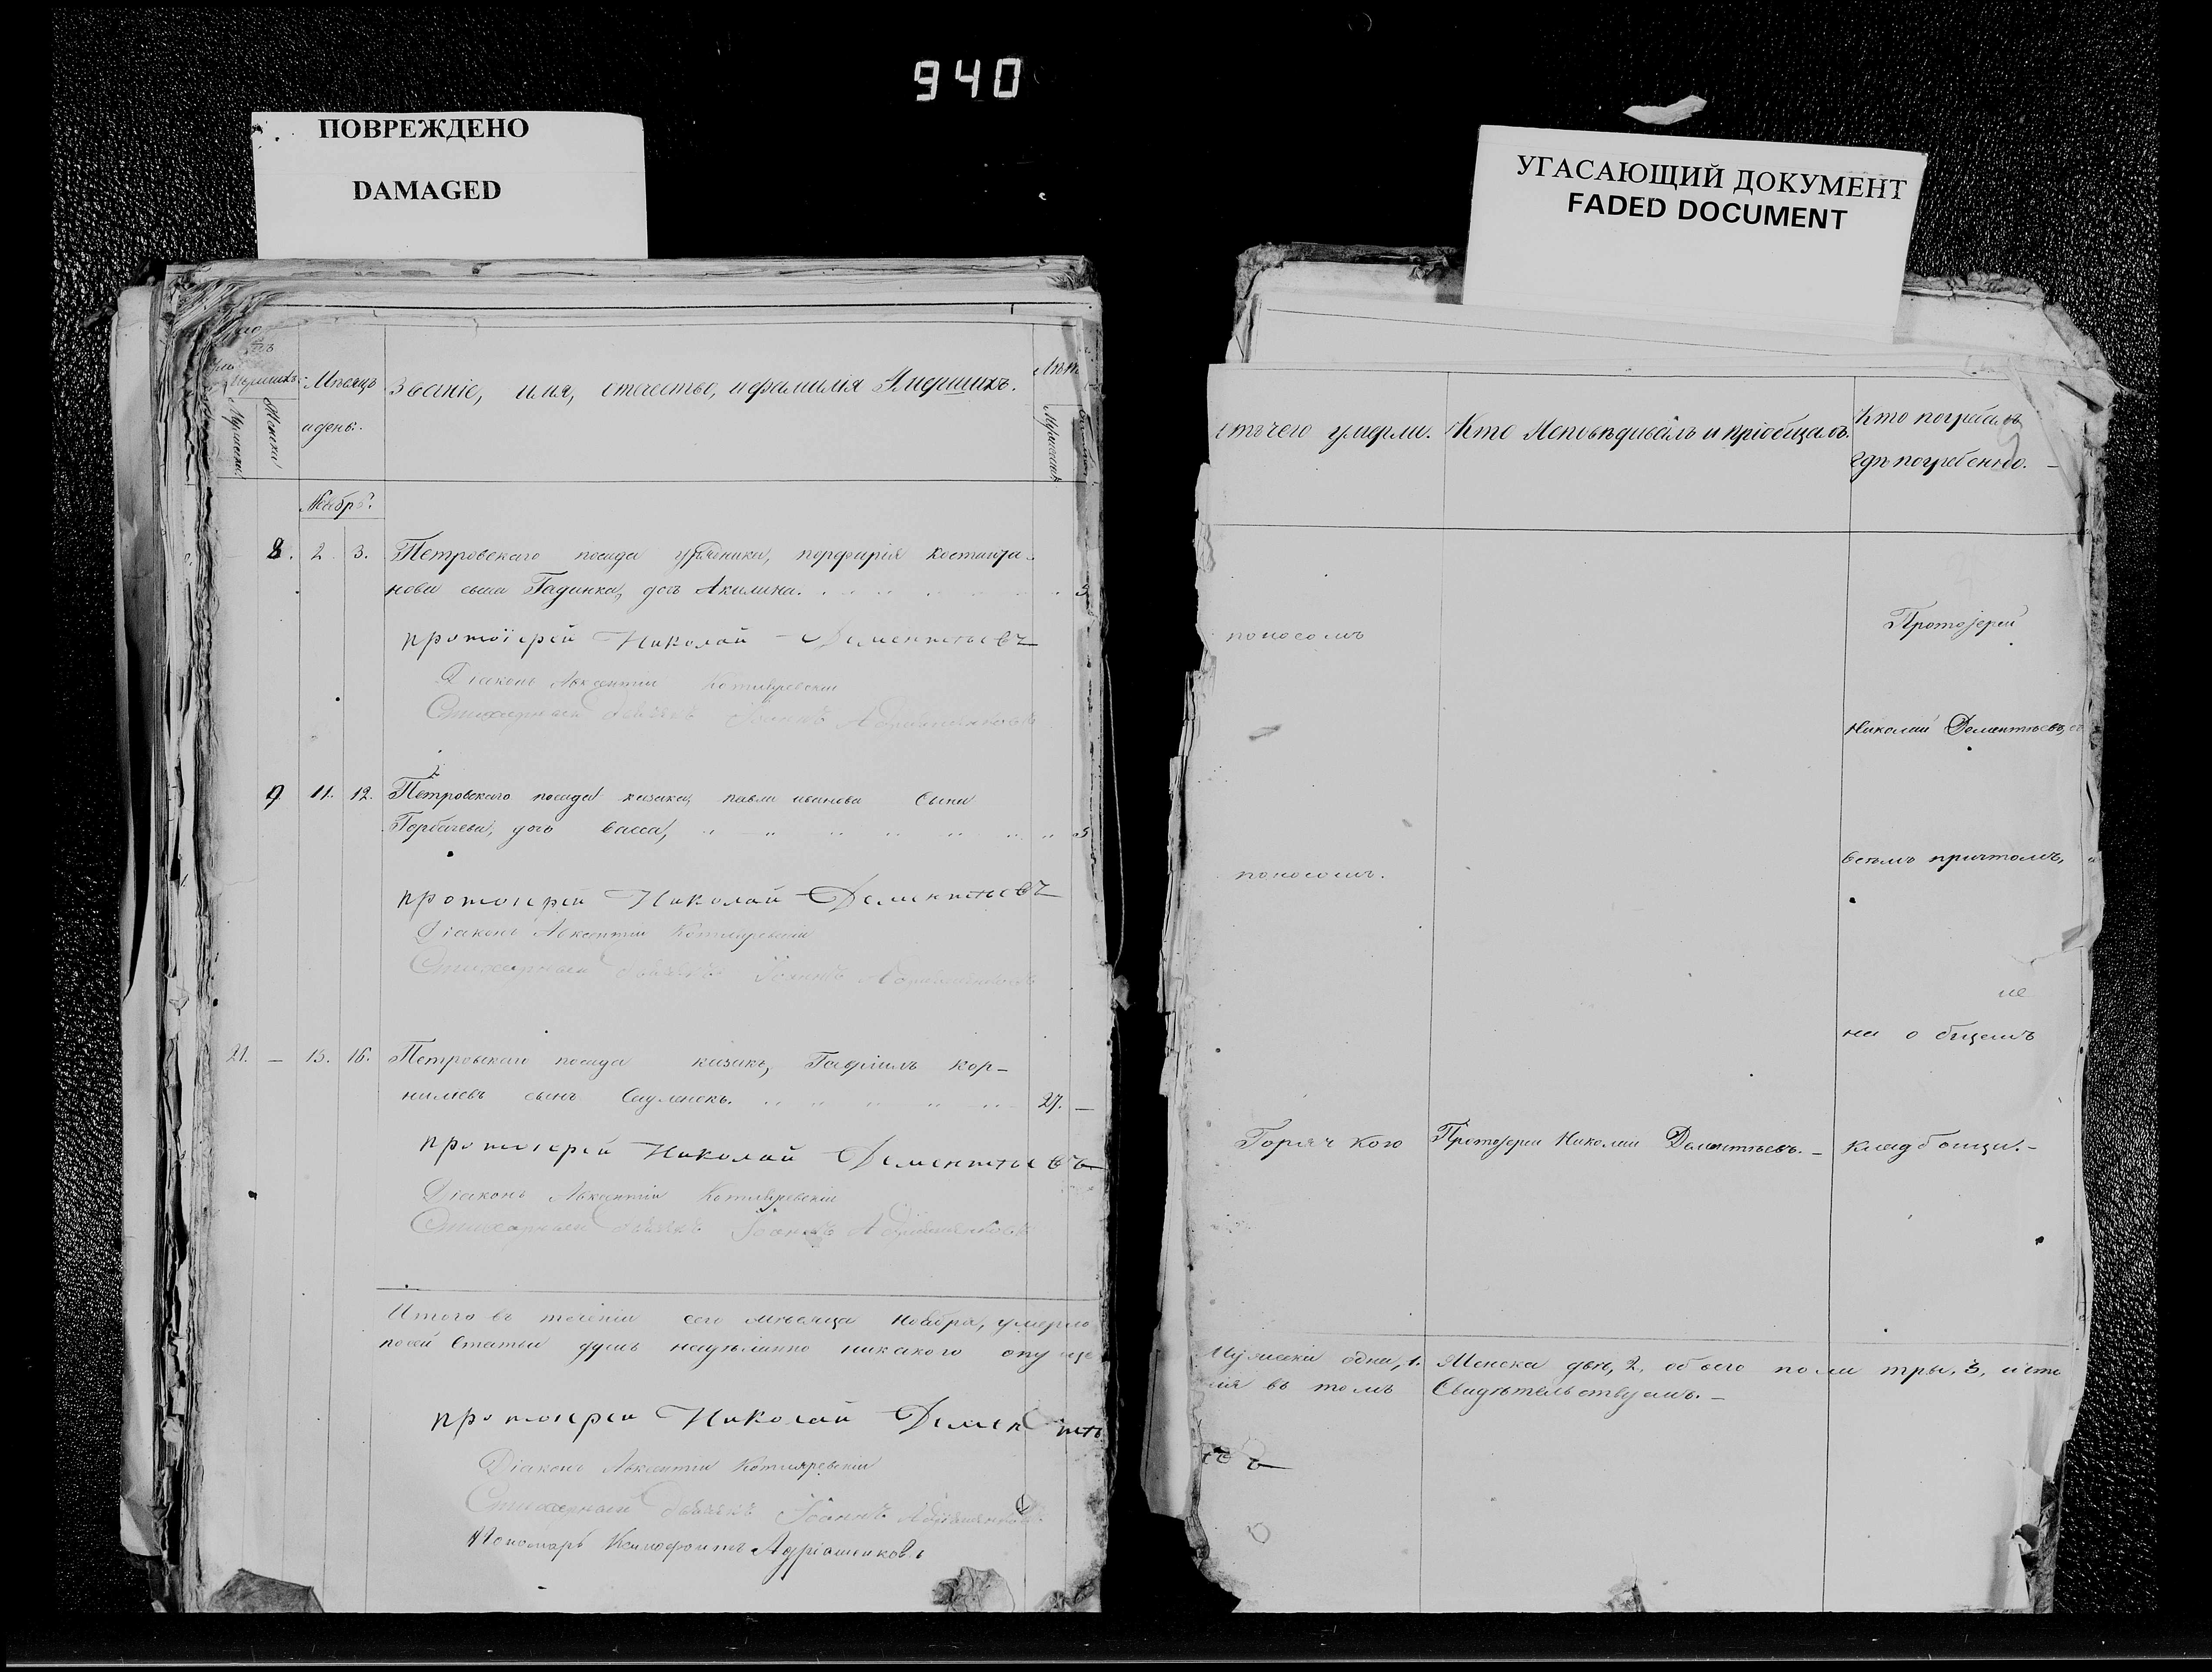 940
ПОВРЕЖДЕНО
DAMAGED
УГАСАЮЩИЙ ДОКУМЕНТ
FADED DOCUMENT
Мѣсяцъ
и день.
Званіе, имя, отечество, и фамилія Умершихъ.
Лѣта
Мужеска.
Женска
Мужескаго
Ноябрь.
8. 2 3. Петровскаго посада урядника, порфирія костанти-
нова сына Гадинка, дочь Акилина.
протоіерей Николай Дементьевъ
Діаконъ Авксентій Котляревскій
Стихарный Дьячекъ Іоаннъ
9 11. 12. Петровскаго посада казака, павла иванова сына
Горбачева, дочь васса, 5
протоіерей Николай Дементьевъ
Діаконъ Авксентій Котляревскій
Стихарный Дьячекъ Іоаннъ
21. — 15. 16. Петровскаго посада казакъ, Гавріилъ кор-
ниліевъ сынъ 27. —
протоіерей Николай Дементьевъ
Діаконъ Авксентій Котляревскій
Стихарный Дьячекъ Іоаннъ
Итого въ теченіи сего мѣсяца ноября, умерло
посей статьи душъ никакого опуще
протоіерей Николай Демен ть
Діаконъ Авксентій Котляревскій
Стихарный Дьячекъ Іоаннъ
Пономарь Ксенофонтъ Адріашенковъ
отъ чего умерли. Кто Исповѣдывалъ и пріобщалъ. Кто погребалъ
гдѣ погребено.
поносомъ
Протоіерей
Николай Дементьевъ, съ
всѣмъ притомъ,
поносомъ.
на общемъ
Горячкою Протоіерей Николай Дементьевъ. — кладбищи. —
Мужеска одна, 1. Женска двѣ, 2, обоего пола три, 3, и что
нія въ томъ Свидѣтельствуемъ. —